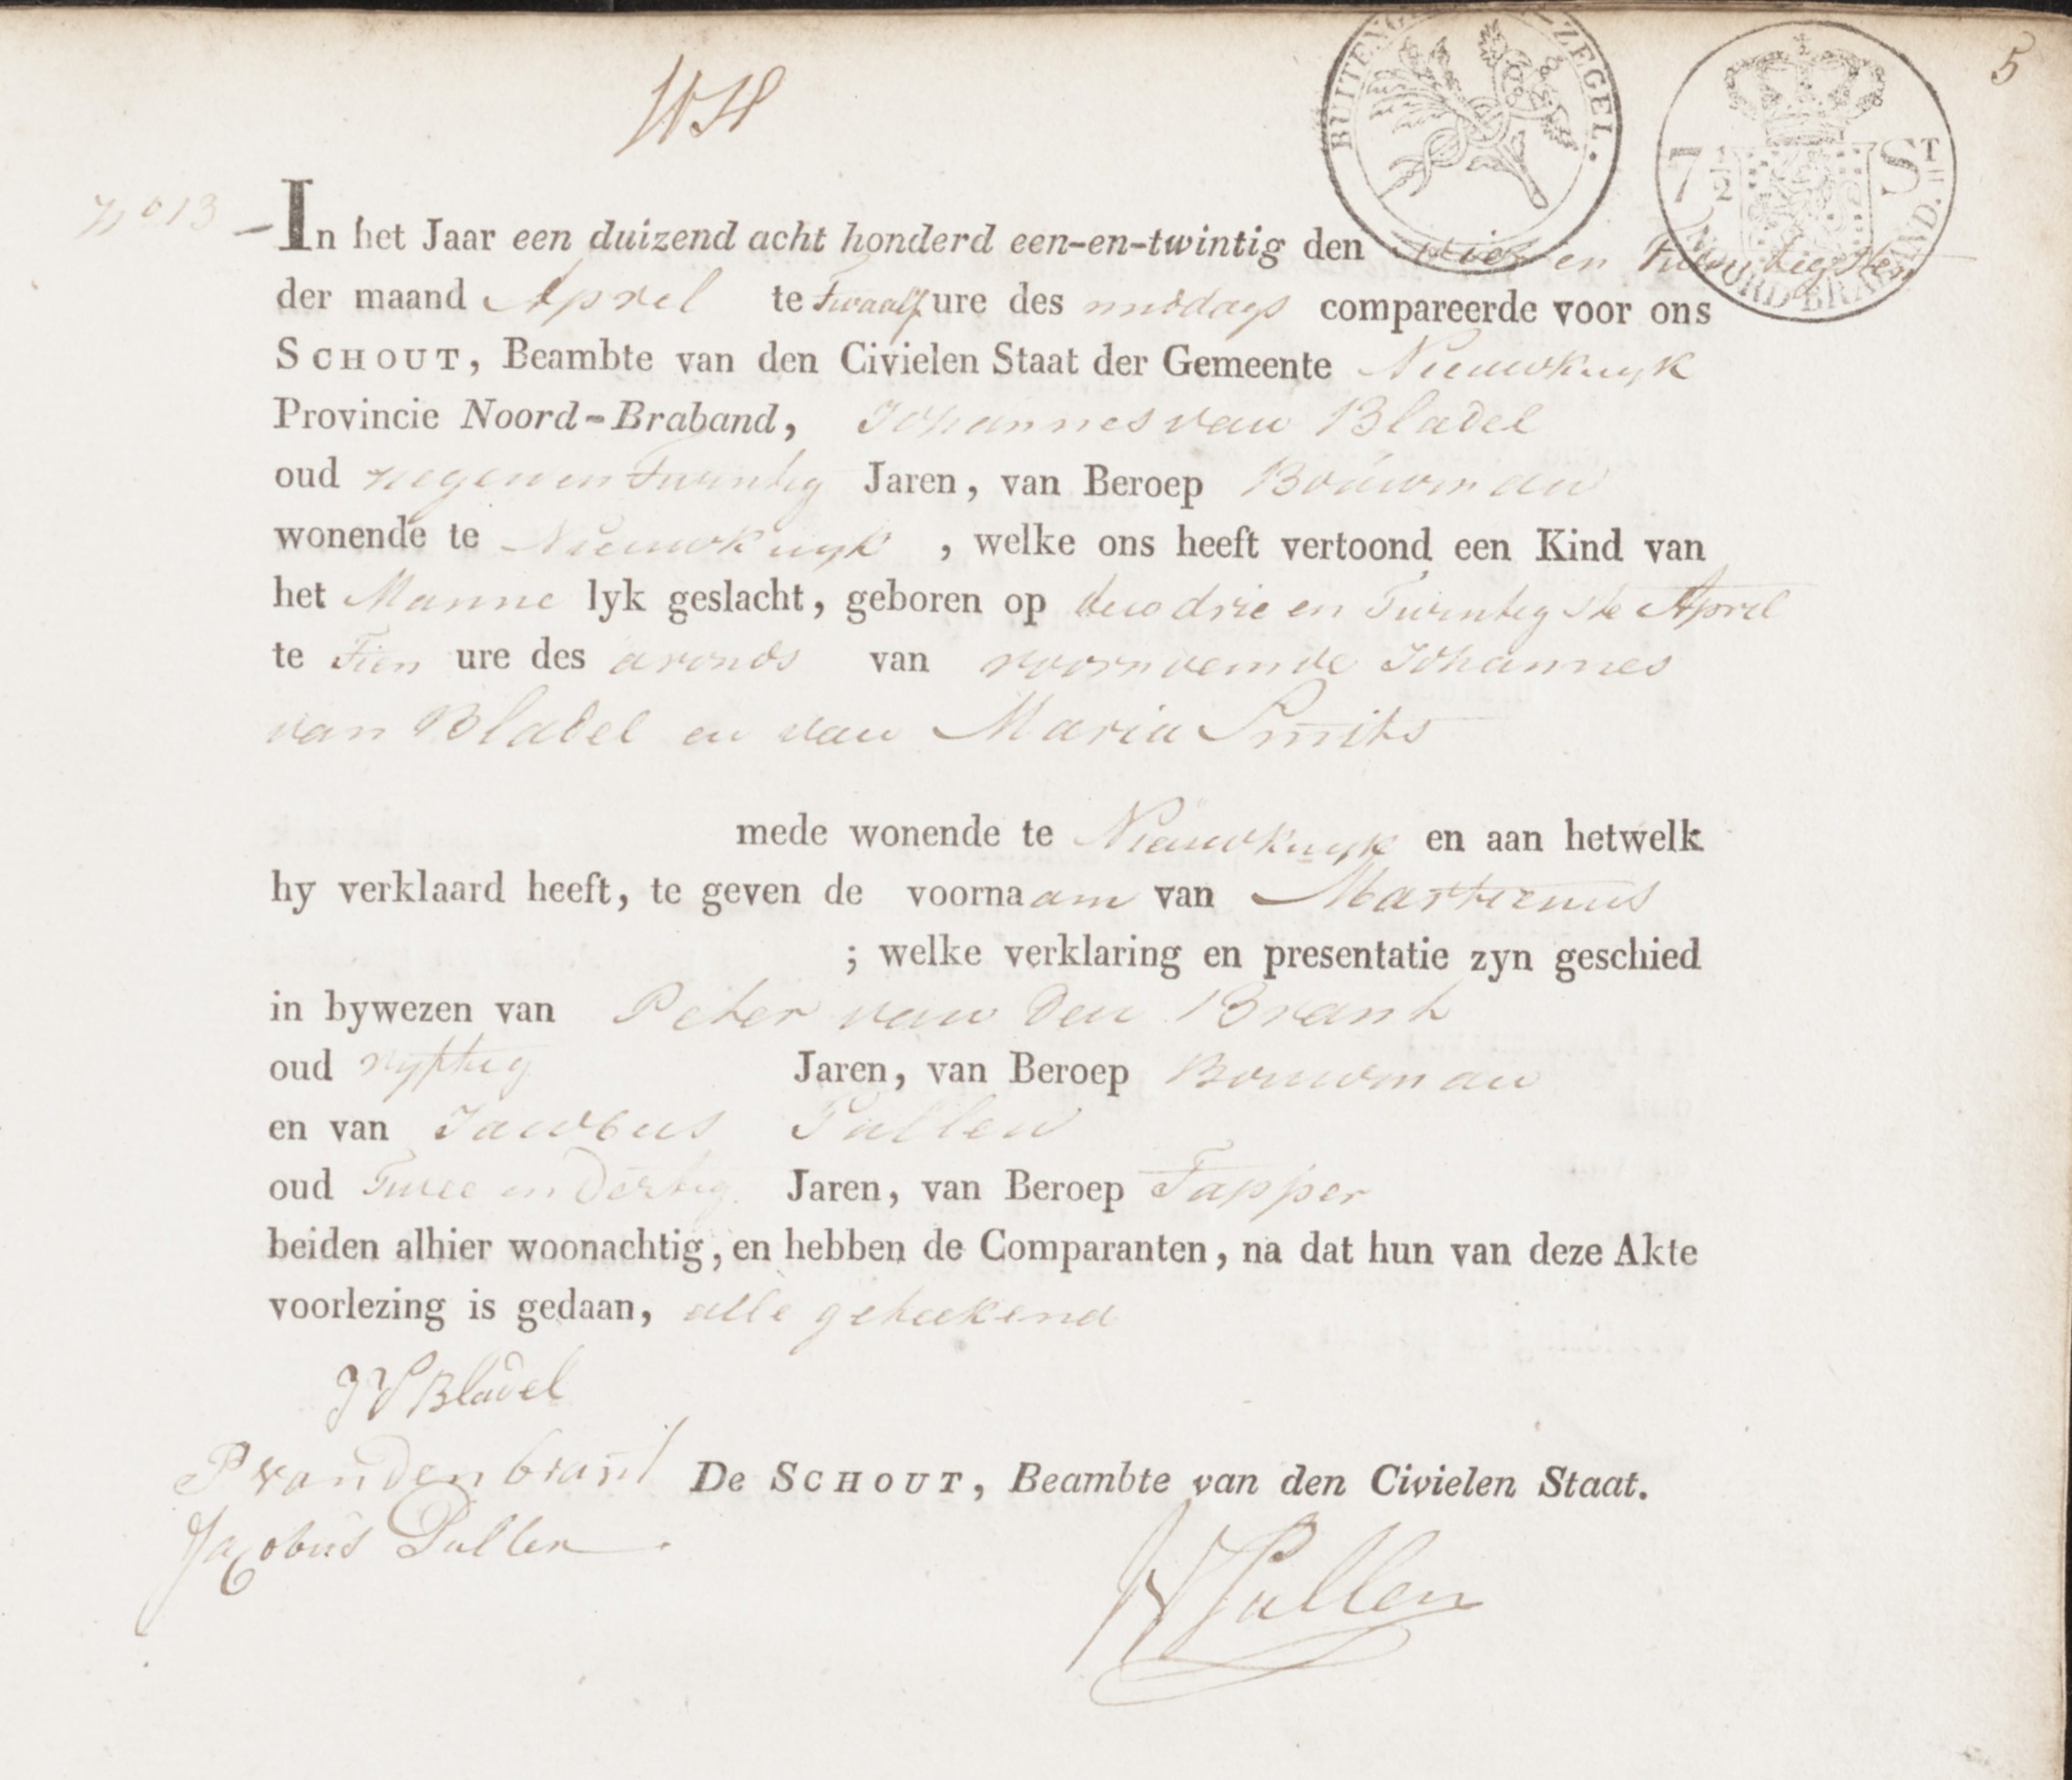 5
BUITENG ZEGEL.
7 1/2 ST
NOORD-BRABAND.
WH
No 13
In het Jaar een duizend acht honderd een-en-twintig den vier en Twintigsten
der maand April te twaalf ure des middags compareerde voor ons
SCHOUT, Beambte van den Civielen Staat der Gemeente Nieuwkuyk
Provincie Noord-Braband, Johannes van Bladel
oud negen en twintig Jaren, van Beroep Bouwman
wonende te Nieuwkuyk, welke ons heeft vertoond een Kind van
het Manne lyk geslacht, geboren op den drie en Twintigste April
te Tien ure des avonds van voornoemde Johannes
van Bladel en van Maria Smits
mede wonende te Nieuwkuyk en aan hetwelk
hy verklaard heeft, te geven de voornaam van Martienus
; welke verklaring en presentatie zyn geschied
in bywezen van Peter van den Brant
oud vyftig Jaren, van Beroep Bouwman
en van Jacobus Pullen
oud Twee en Dertig Jaren, van Beroep Tapper
beiden alhier woonachtig, en hebben de Comparanten, na dat hun van deze Akte
voorlezing is gedaan, alle geteekend
J V Bladel
P van den brant
De SCHOUT, Beambte van den Civielen Staat.
Jacobus Pullen
Pullen